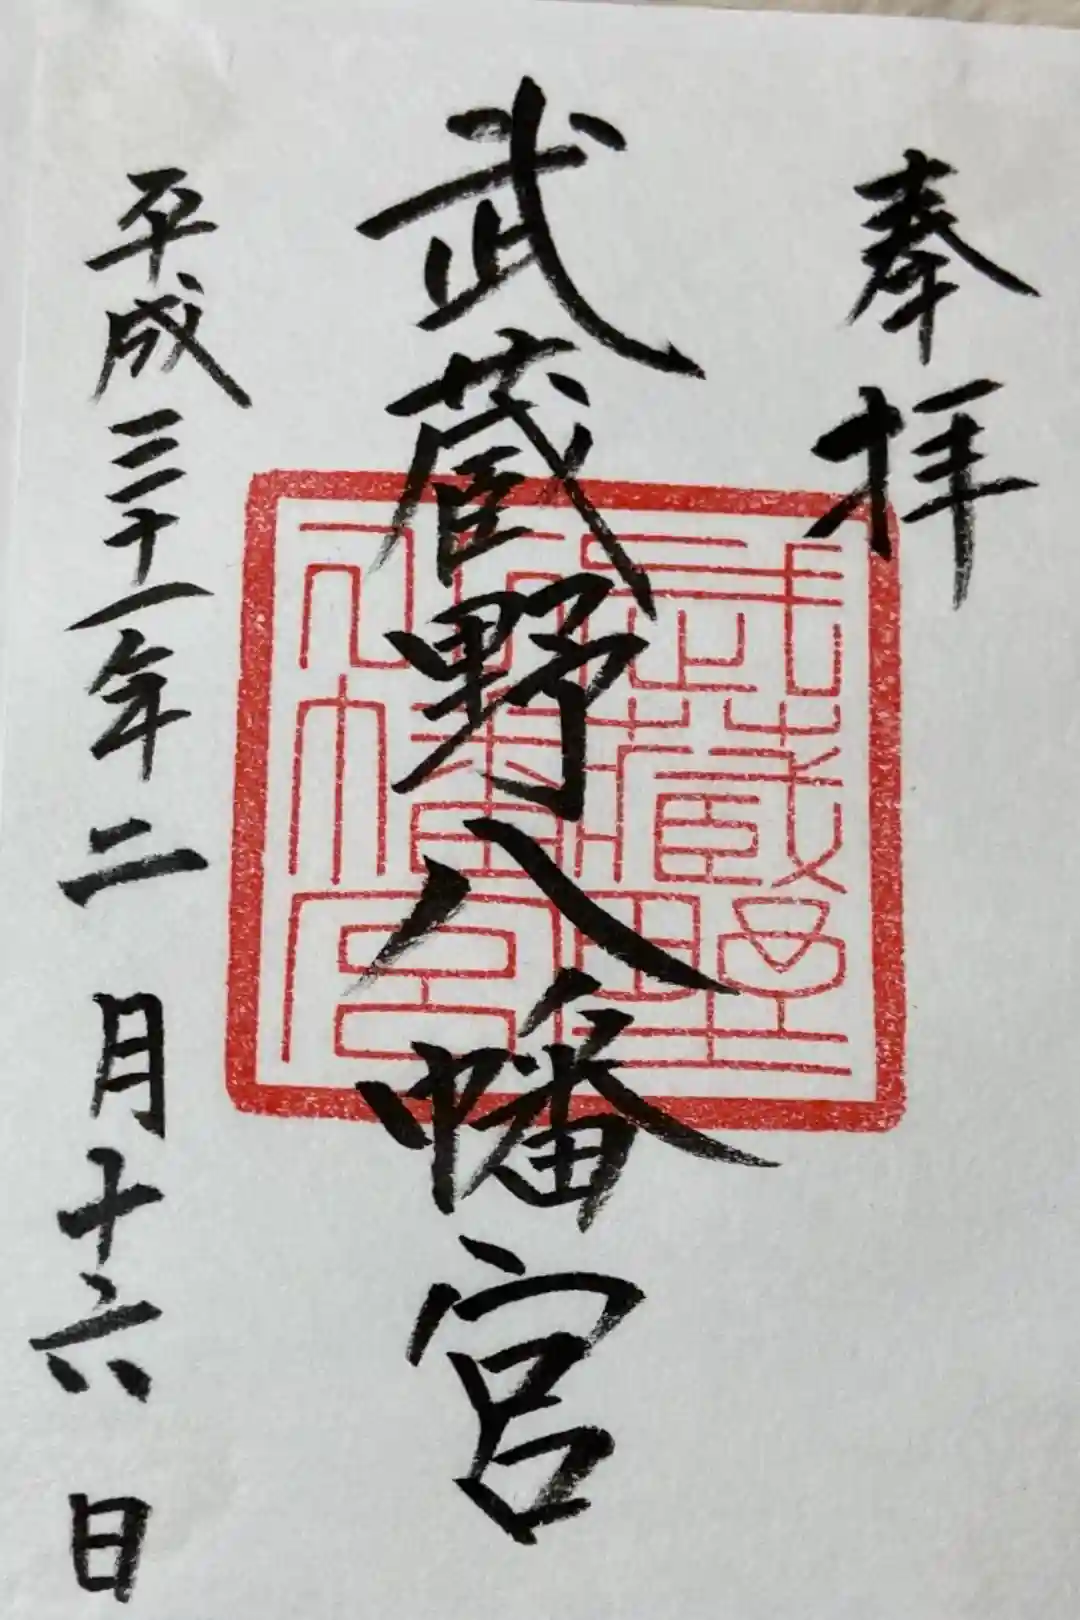 奉拝
武蔵野八幡宮
武蔵野八幡宮
平成三十一年二月十六日